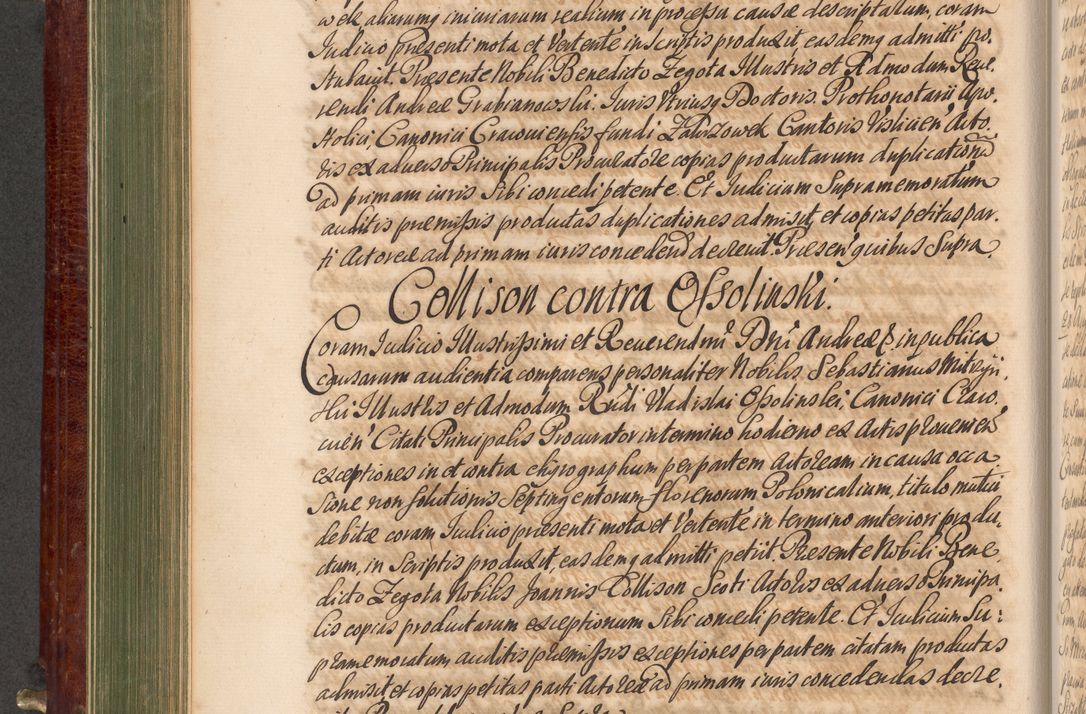 wek aliarumq iniuriarum realium in processu causæ descriptatum, coram
Iudicio presenti mota et Vertente in scriptis produxit, easdemq admitti po:
stulauit. Præsente Nobili Benedicto Zegota Illustris et Admodum Reue,
rendi Andreæ Grabianowski. Iuris Vtriusq Doctoris. Prothonotarii Apo,
stolici, Canonici Cracouiensis fundi Zalizowek Cantoris Vislicien' Acto,
ris ex aduerso Principalis Procuratore copias productarum duplicationũ
ad primam iuris Sibi concedi petente. Et Iudicium Supramemoratum
auditis præmissis productas duplicationes admisit, et copias petitas par,
ti Actoreæ ad primam iuris concedend decreuit. Præsen' quibus Supra.
Collison contra Ossolinski.
Coram Iudicio Illustrissimi et Reuerendmi Dni Andreæ &. in publica
causarum audientia comparens personaliter Nobilis Sebastianus
Illustris et Admodum Rñdi Vladislai Ossolinski, Canonici Craco,
cuien' Citati Principalis Procurator in termino hodierno ex Actis prouenien'
exceptiones in et contra chirographum per partem Actoream in causa occa
sione non solutionis Septingentorum florenorum Polonicalium, titulo mutui
debitæ coram Iudicio præsenti mota et Vertente in termino anteriori produ,
ctum, in Scriptis produxit, easdemq admitti petiit. Præsente Nobili Bene
dicto Zegota Nobilis Joannis Collison Scoti Actoris ex aduerso Principa
lis copias productarum exceptionum Sibi concedi petente. Et Iudicium Su:
pramemoratum auditis præmissis exceptiones per partem citatam productas
admisit, et copias petitas parti Actoreæ ad primam iuris concedendas decre,